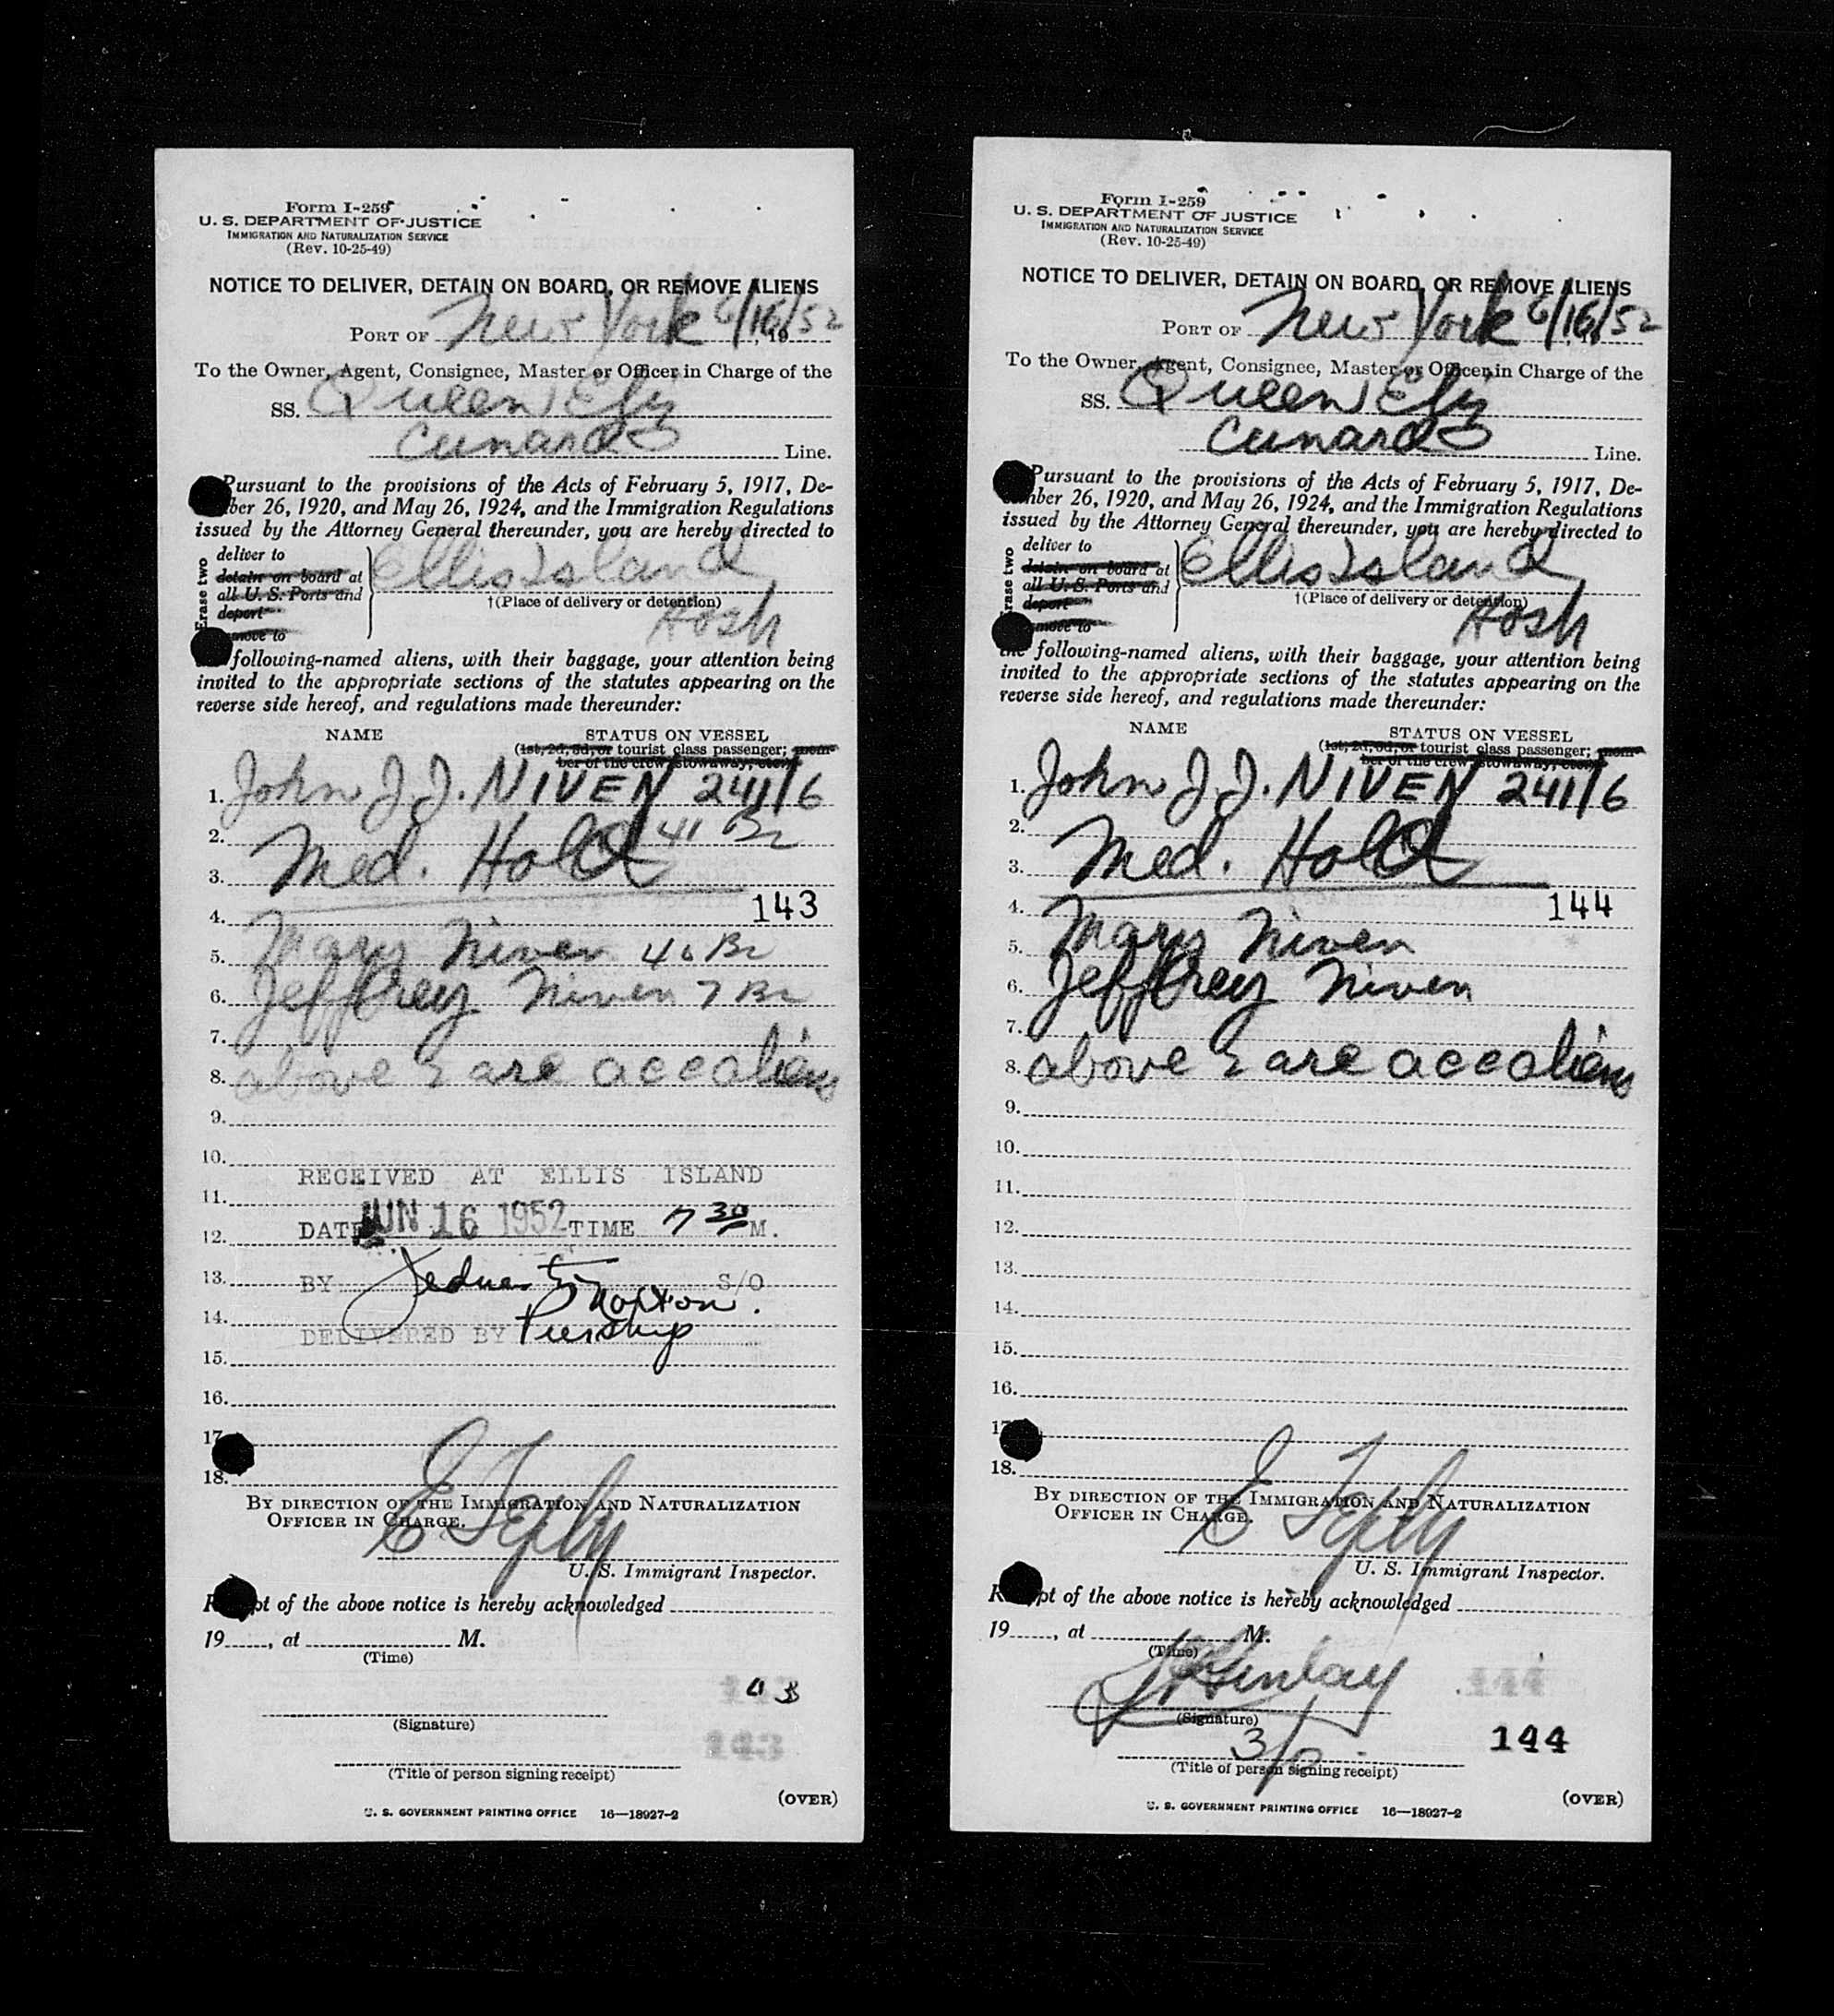 Form I-259
U. S. DEPARTMENT OF JUSTICE
IMMIGRATION AND NATURALIZATION SERVICE
(Rev. 10-25-49)
NOTICE TO DELIVER, DETAIN ON BOARD, OR REMOVE ALIENS
PORT OF New York 6/16/52, 19
To the Owner, Agent, Consignee, Master or Officer in Charge of the
SS. Queen Eliz
Cunard Line.
Pursuant to the provisions of the Acts of February 5, 1917, De-
ber 26, 1920, and May 26, 1924, and the Immigration Regulations
issued by the Attorney General thereunder, you are hereby directed to
Erase two
deliver to
detain on board at
all U. S. Ports and
deport
move to
Ellis Island
†(Place of delivery or detention)
Hosh
following-named aliens, with their baggage, your attention being
invited to the appropriate sections of the statutes appearing on the
reverse side hereof, and regulations made thereunder:
NAME STATUS ON VESSEL
(1st, 2d, 3d, or tourist class passenger; mem-
ber of the crew, stowaway, etc.)
1. John J. J. NIVEN 241/6
2. 41 Br
3. Med. Hold
4. 143
5. Mary Niven 40 Br
6. Jeffrey Niven 7 Br
7.
8. above 2 are acc aliens
9.
10.
RECEIVED AT ELLIS ISLAND
11.
12. DATE JUN 16 1952 TIME 7 30 P M.
13. BY S/O
14.
DELIVERED BY
15.
16.
17.
18.
BY DIRECTION OF THE IMMIGRATION AND NATURALIZATION
OFFICER IN CHARGE.
U. S. Immigrant Inspector.
pt of the above notice is hereby acknowledged
19 , at M.
(Time)
143
(Signature)
143
(Title of person signing receipt)
(OVER)
U. S. GOVERNMENT PRINTING OFFICE 16—18927-2
Form I-259
U. S. DEPARTMENT OF JUSTICE
IMMIGRATION AND NATURALIZATION SERVICE
(Rev. 10-25-49)
NOTICE TO DELIVER, DETAIN ON BOARD, OR REMOVE ALIENS
PORT OF New York 6/16/52
To the Owner, Agent, Consignee, Master or Officer in Charge of the
SS. Queen Eliz
Cunard Line.
Pursuant to the provisions of the Acts of February 5, 1917, De-
mber 26, 1920, and May 26, 1924, and the Immigration Regulations
issued by the Attorney General thereunder, you are hereby directed to
Erase two
deliver to
detain on board at
all U. S. Ports and
deport
move to
Ellis Island
†(Place of delivery or detention)
Hosh
the following-named aliens, with their baggage, your attention being
invited to the appropriate sections of the statutes appearing on the
reverse side hereof, and regulations made thereunder:
NAME STATUS ON VESSEL
(1st, 2d, 3d, or tourist class passenger; mem-
ber of the crew, stowaway, etc.)
1. John J. J. NIVEN 241/6
2.
3. Med. Hold
4. 144
5. Mary Niven
6. Jeffrey Niven
7.
8. above 2 are acc aliens
9.
10.
11.
12.
13.
14.
15.
16.
17.
18.
BY DIRECTION OF THE IMMIGRATION AND NATURALIZATION
OFFICER IN CHARGE.
U. S. Immigrant Inspector.
pt of the above notice is hereby acknowledged
19 , at M.
(Time)
144
(Signature)
144
(Title of person signing receipt)
(OVER)
U. S. GOVERNMENT PRINTING OFFICE 16—18927-2